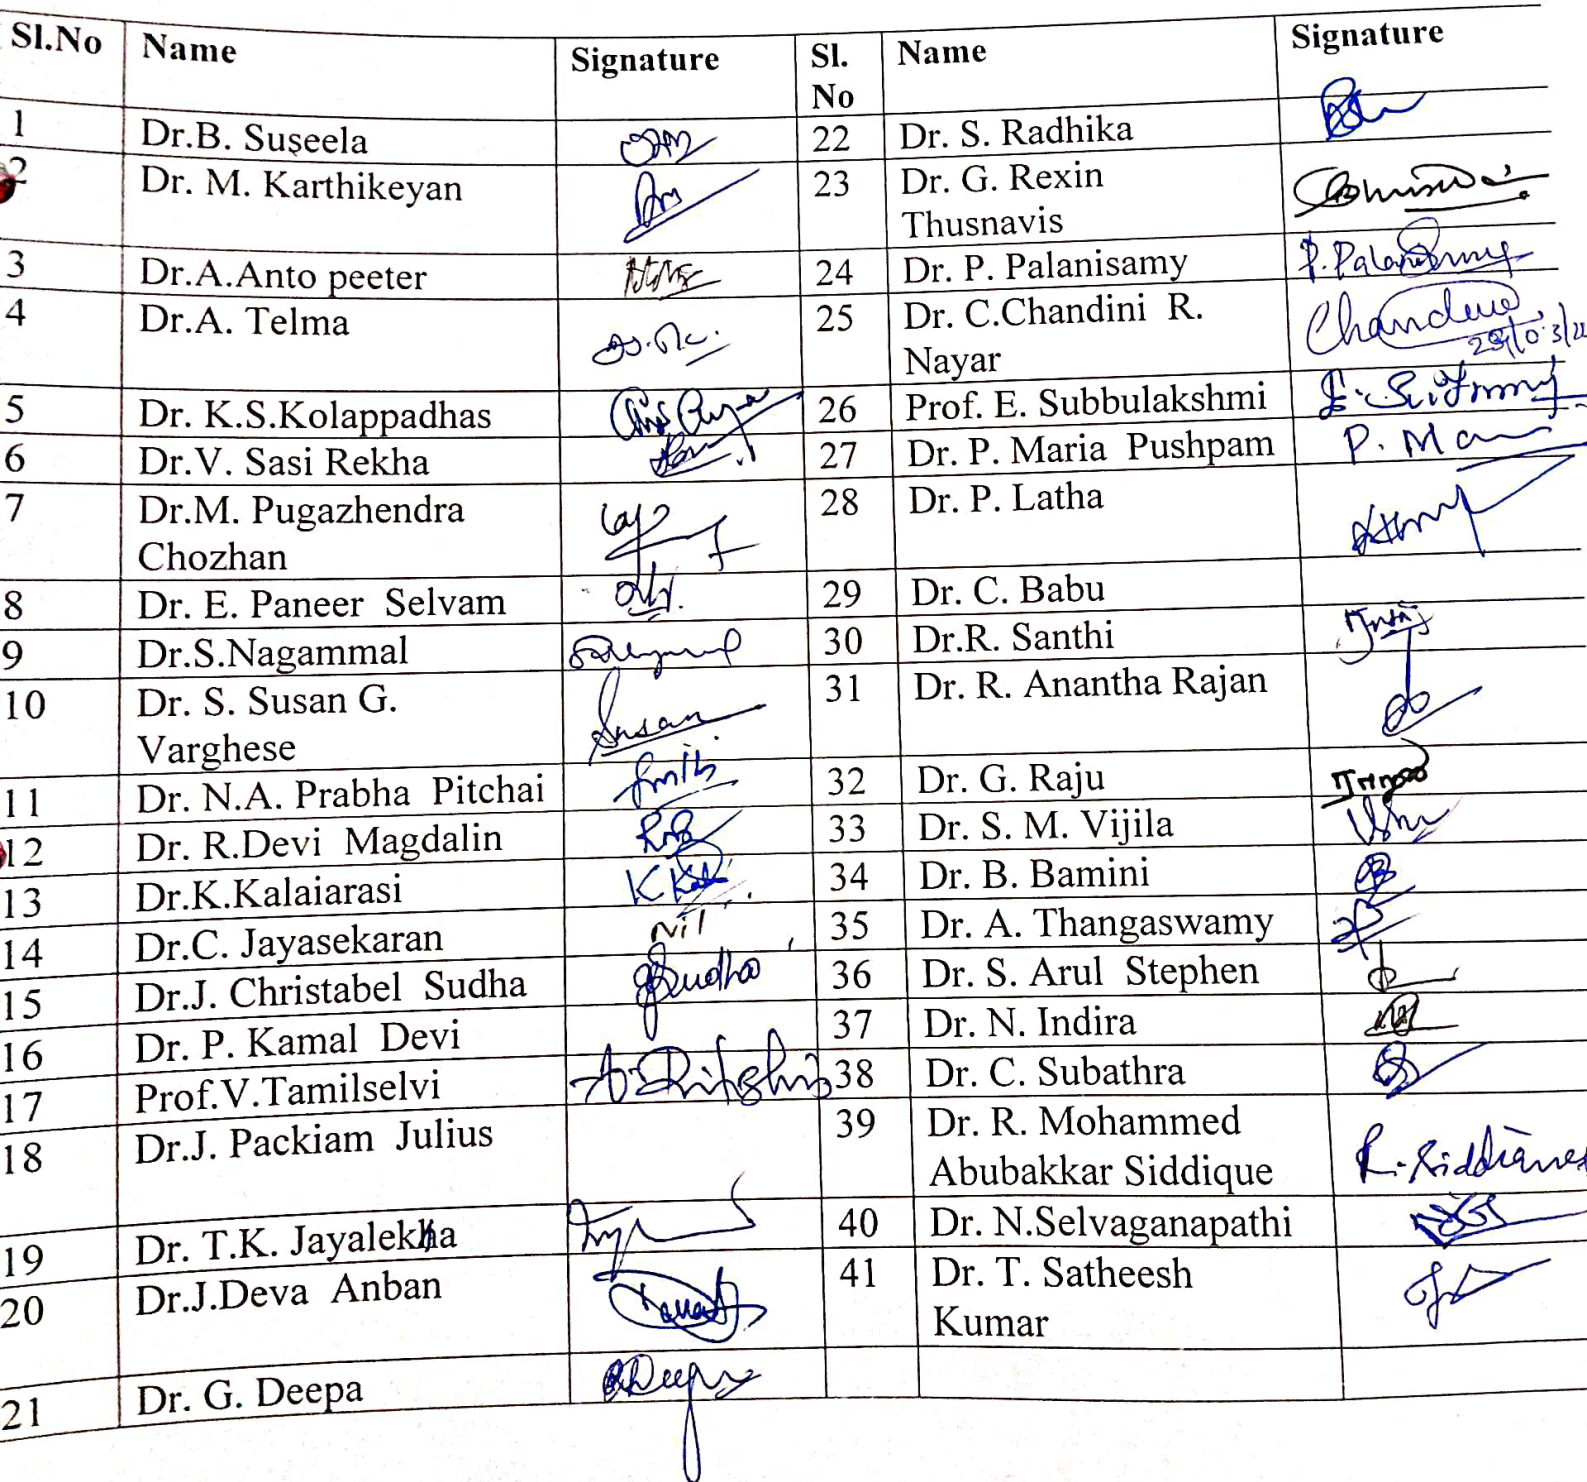 Sl.No Name Signature Sl. No Name Signature
1 Dr.B. Suseela 22 Dr. S. Radhika
2 Dr. M. Karthikeyan 23 Dr. G. Rexin
Thusnavis
3 Dr.A.Anto peeter 24 Dr. P. Palanisamy P. Palanisamy
4 Dr.A. Telma 25 Dr. C.Chandini R.
Nayar
5 Dr. K.S.Kolappadhas 26 Prof. E. Subbulakshmi
6 Dr.V. Sasi Rekha 27 Dr. P. Maria Pushpam P. Ma
7 Dr.M. Pugazhendra 28 Dr. P. Latha
Chozhan
8 Dr. E. Paneer Selvam 29 Dr. C. Babu
9 Dr.S.Nagammal 30 Dr.R. Santhi
10 Dr. S. Susan G. 31 Dr. R. Anantha Rajan
Varghese Susan
11 Dr. N.A. Prabha Pitchai 32 Dr. G. Raju
12 Dr. R.Devi Magdalin 33 Dr. S. M. Vijila
13 Dr.K.Kalaiarasi 34 Dr. B. Bamini
14 Dr.C. Jayasekaran Nil 35 Dr. A. Thangaswamy
15 Dr.J. Christabel Sudha Sudha 36 Dr. S. Arul Stephen
16 Dr. P. Kamal Devi 37 Dr. N. Indira
17 Prof.V.Tamilselvi 38 Dr. C. Subathra
18 Dr.J. Packiam Julius 39 Dr. R. Mohammed
Abubakkar Siddique
19 Dr. T.K. Jayalekha 40 Dr. N.Selvaganapathi
20 Dr.J.Deva Anban 41 Dr. T. Satheesh
Kumar
21 Dr. G. Deepa Deepa